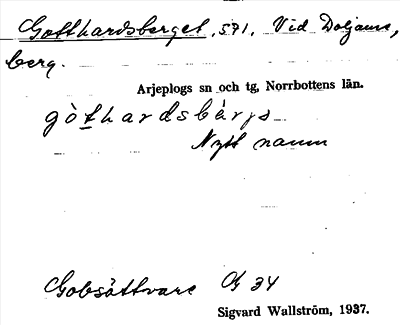 Gotthardsberget, 571. Vid Doljaure,
berg.
Arjeplogs sn och tg, Norrbottens län.
gòthardsbärjs
Nytt namn
Gobsåttvare Of 34
Sigvard Wallström, 1937.